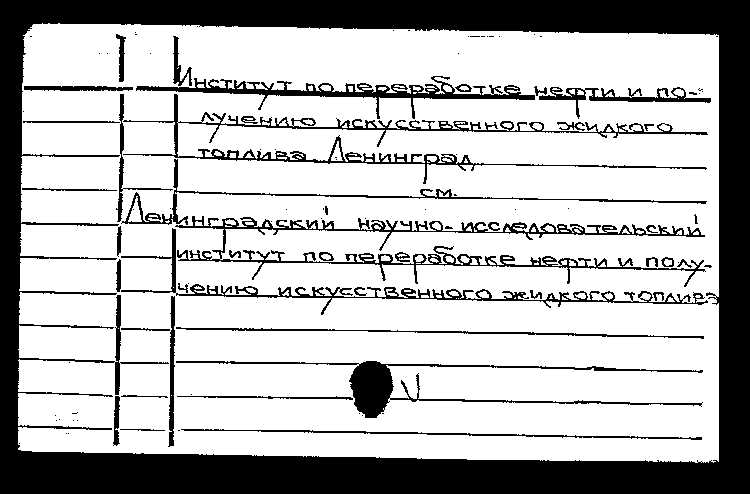 Институт по переработке нефти и по-
лучению искусственного жидкого
топлива. Ленинград.
см.
Ленинградский научно-исследовательский
институт по переработке нефти и полу-
чению искусственного жидкого топлива